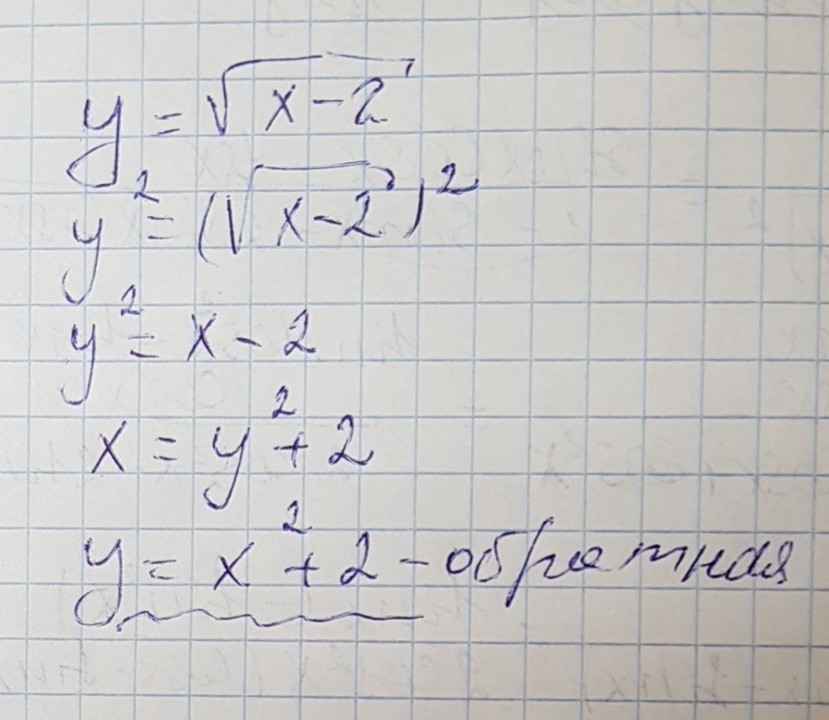 y = √(x-2)
y² = (√(x-2))²
y² = x - 2
x = y² + 2
y = x² + 2 - обратная